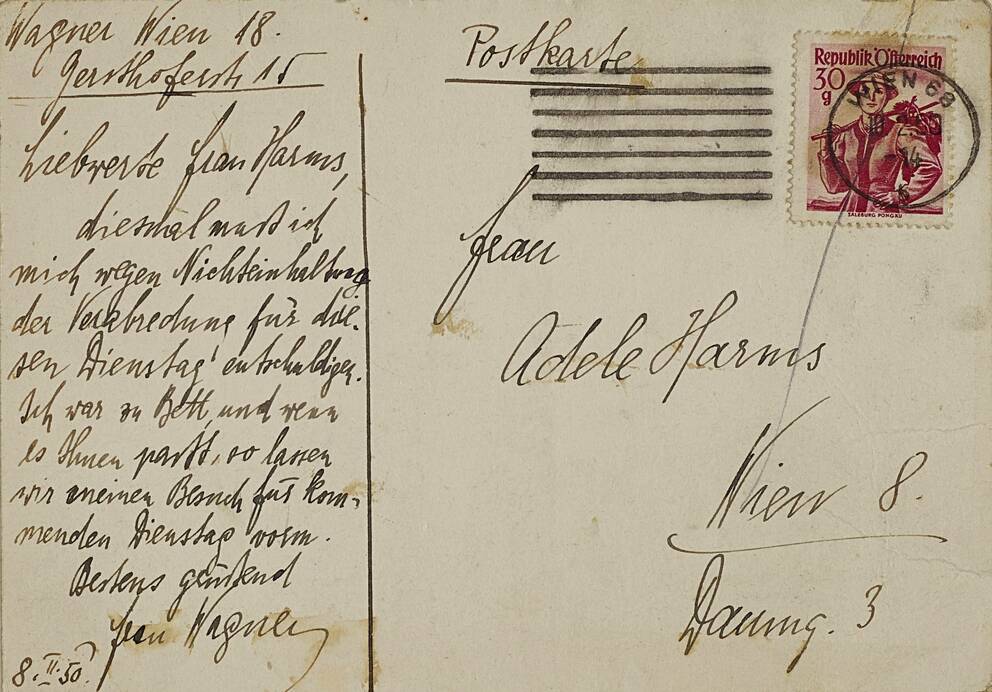 Wagner Wien 18.
Gersthoferstr 15
Liebwerte Frau Harms,
diesmal muß ich
mich wegen Nichteinhaltung
der Verabredung für die-
sen Dienstag entschuldigen.
Ich war zu Bett, und wenn
es Ihnen paßt, so lassen
wir meinen Besuch für kom-
menden Dienstag vorm.
Bestens grüßend
Wagner
8. II. 50.
Postkarte
Republik Österreich
30
g
SALZBURG PONGAU
WIEN 68
14
Frau
Adele Harms
Wien 8.
Daung. 3